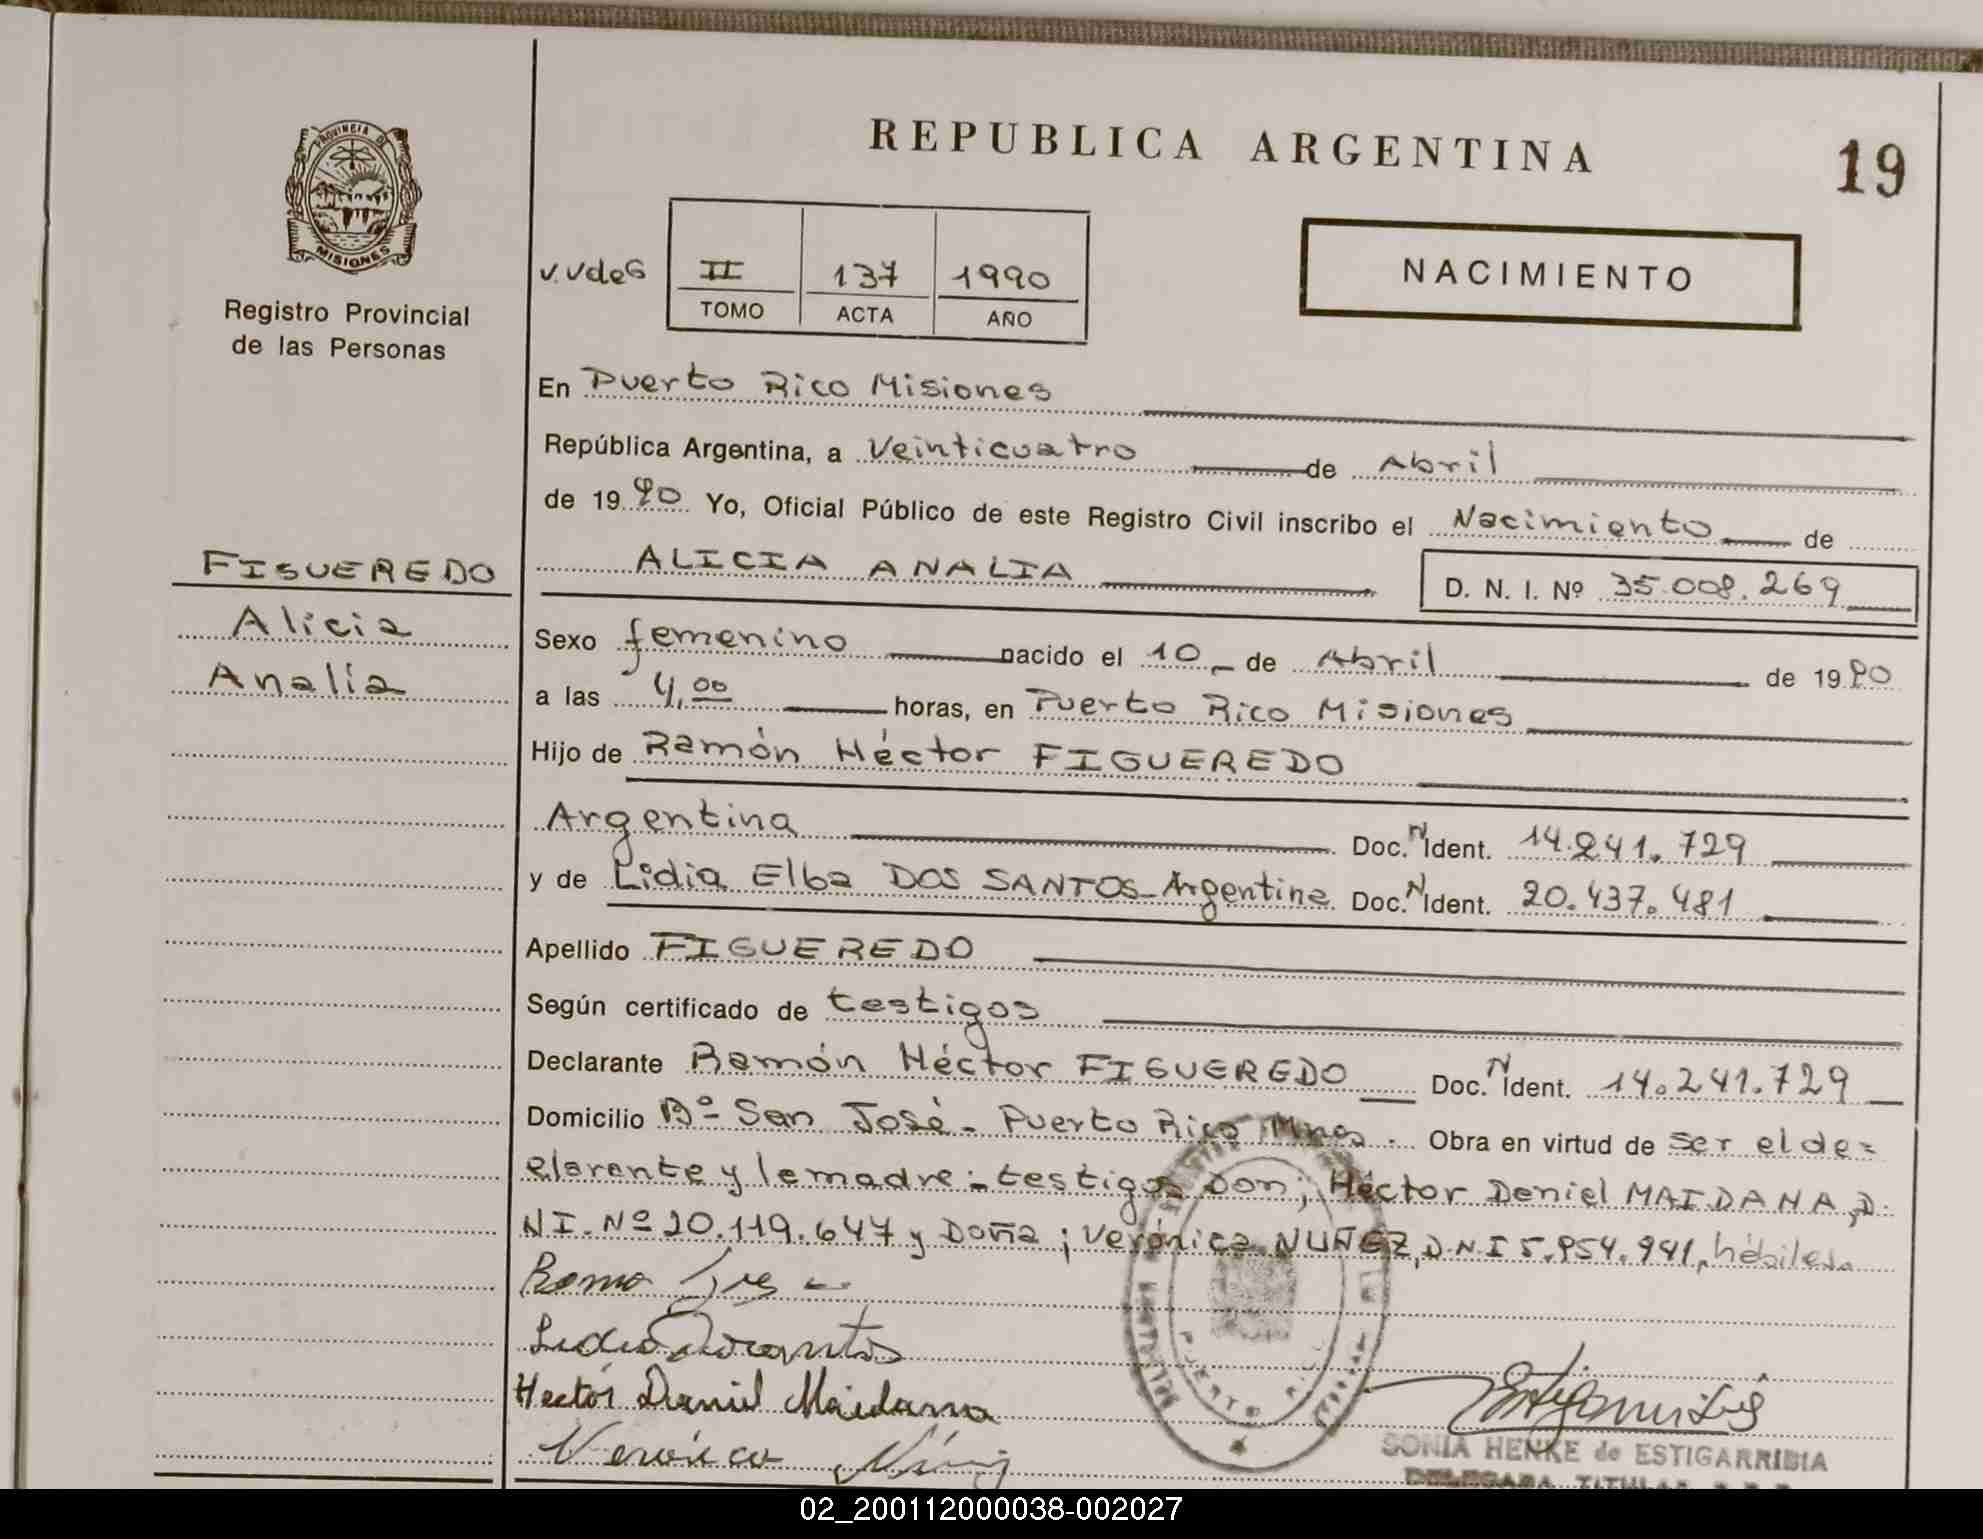 REPUBLICA ARGENTINA
19
PROVINCIA DE
MISIONES
Registro Provincial
de las Personas
v.vdeG
II 137 1990
TOMO ACTA AÑO
NACIMIENTO
En Puerto Rico Misiones
República Argentina, a Veinticuatro de Abril
de 1990 Yo, Oficial Público de este Registro Civil inscribo el Nacimiento de
FIGUEREDO
Alicia
Analía
ALICIA ANALIA D. N. I. Nº 35.008.269
Sexo femenino nacido el 10 de Abril de 1990
a las 4,00 horas, en Puerto Rico Misiones
Hijo de Ramón Héctor FIGUEREDO
Argentina Doc. N Ident. 14.241.729
y de Lidia Elba DOS SANTOS-Argentina Doc. N Ident. 20.437.481
Apellido FIGUEREDO
Según certificado de testigos
Declarante Ramón Héctor FIGUEREDO Doc. N Ident. 14.241.729
Domicilio Bº San José - Puerto Rico Mnes. Obra en virtud de ser el de=
clarante y la madre - testigos Don; Héctor Daniel MAIDANA, D.
NI. Nº 20.119.647 y Doña; Verónica NUÑEZ, D.N.I 5.954.941, hábiles.
Lidia Dos Santos
Hector Daniel Maidana
Verónica
SONIA HENKE de ESTIGARRIBIA
DELEGADA TITULAR
02_200112000038-002027